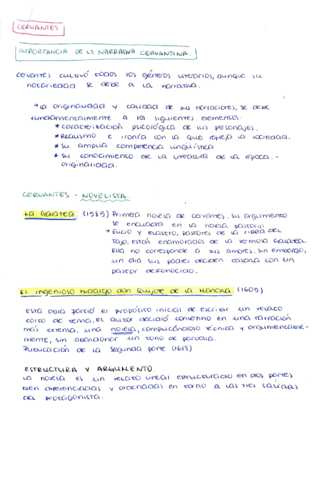 CERVANTES
IMPORTANCIA DE LA NARRATIVA CERVANTINA.
Cervantes cultivó todos los géneros literarios, aunque su
notoriedad se debe a la narrativa.
*La originalidad y calidad de su narraciones, se debe
fundamentalmente a los siguientes elementos:
*Caracterización psicológica de sus personajes.
*Realismo e ironía con la que refleja la sociedad.
*Su amplia competencia lingüística
*Su conocimiento de la literatura de la época.-
originalidad.
CERVANTES - NOVELISTA.
La Galatea. (1585) Primera novela de Cervantes. Su argumento
se encuadra en la novela pastoril:
*Elicio y Erastro, pastores de la ribera del
Tajo, están enamorados de la hermosa Galatea.
Ella no corresponde a sus amores. Sin embargo,
un día sus padres deciden casarla con un
pastor desconocido.
El ingenioso hidalgo don Quijote de la Mancha (1605)
Esta obra partió el propósito inicial de escribir un relato
corto de tema, el autor decidió convertirlo en una narración
más extensa, una novela, complicándola técnica y argumentalme-
mente, sin abandonar un tono de parodia.
Publicación de la segunda parte (1615)
ESTRUCTURA Y ARGUMENTO
La novela es un relato lineal estructurado en dos partes
bien diferenciadas y ordenadas en torno a las tres salidas
del protagonista.